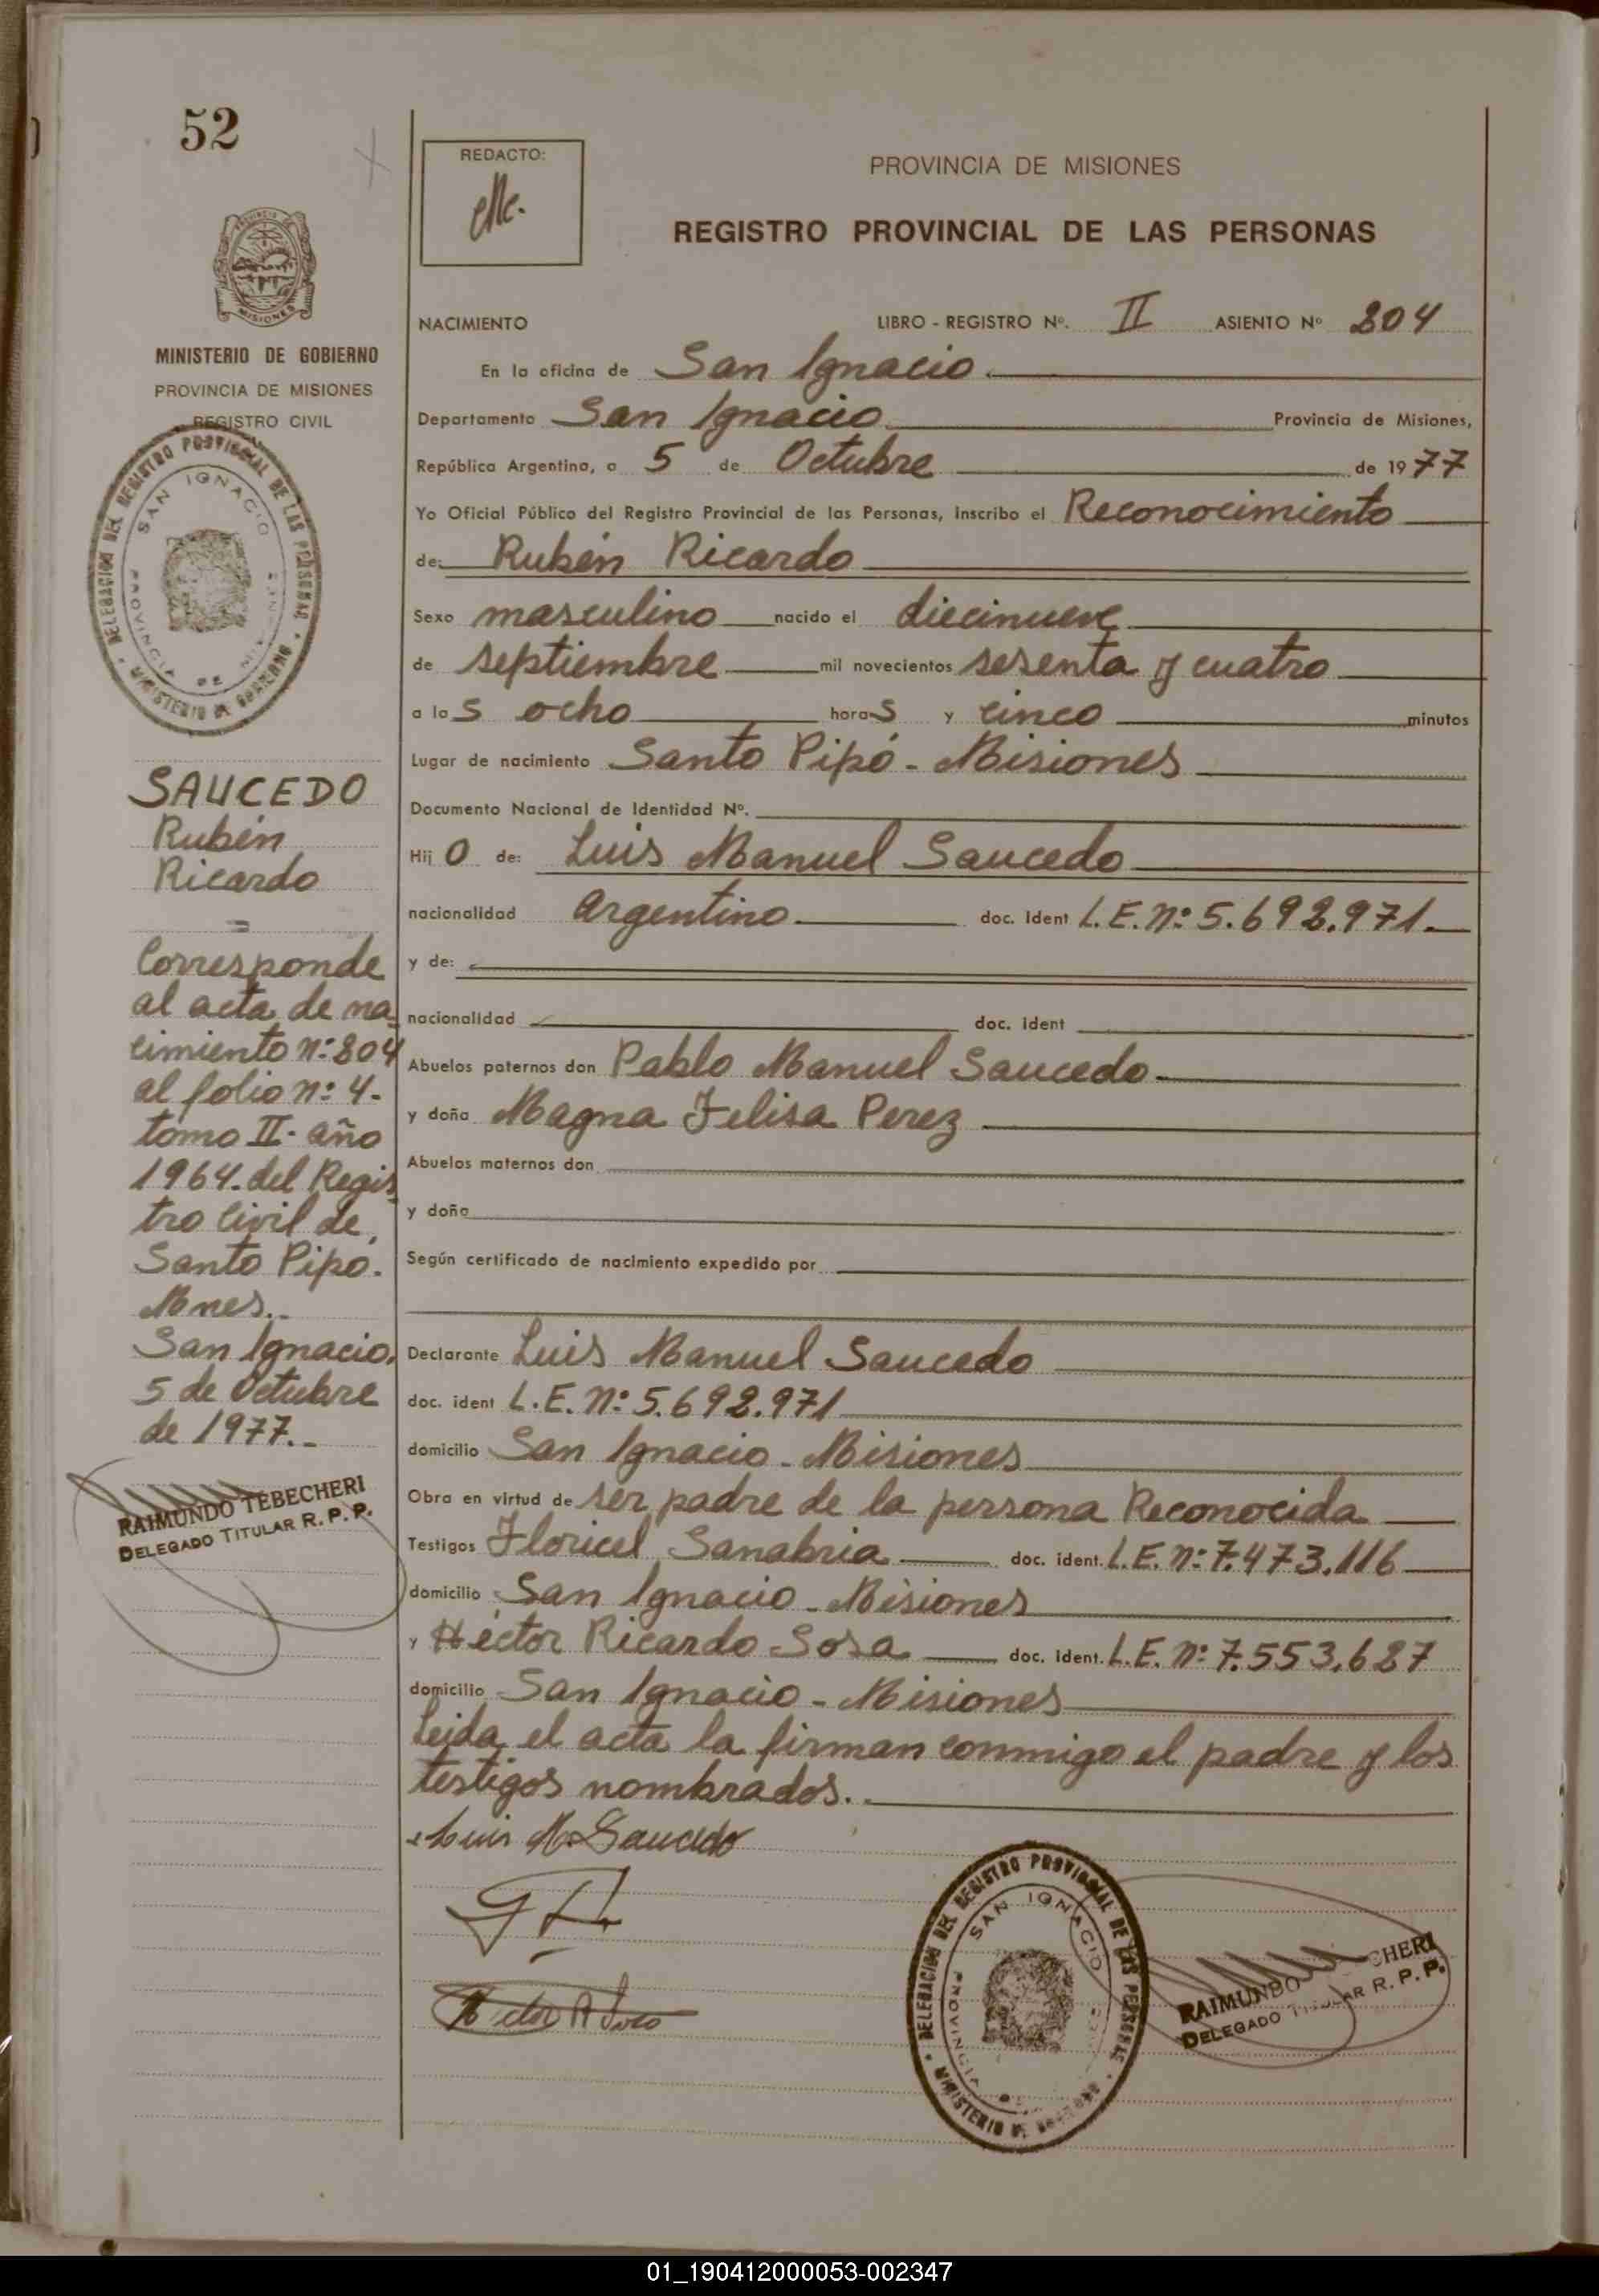 52
REDACTO:
PROVINCIA DE MISIONES
REGISTRO PROVINCIAL DE LAS PERSONAS
MINISTERIO DE GOBIERNO
PROVINCIA DE MISIONES
REGISTRO CIVIL
DELEGACION DEL REGISTRO PROVINCIAL DE LAS PERSONAS
SAN IGNACIO
PROVINCIA DE
MINISTERIO DE GOBIERNO
SAUCEDO
Rubén
Ricardo
=
Corresponde
al acta de na
cimiento n:º 804
al folio n:º 4-
tomo II- año
1964. del Regis
tro Civil de
Santo Pipó.
Mnes..
San Ignacio,
5 de Octubre
de 1977.-
RAIMUNDO TEBECHERI
DELEGADO TITULAR R. P. P.
NACIMIENTO LIBRO - REGISTRO Nº. II ASIENTO Nº 804
En la oficina de San Ignacio.
Departamento San Ignacio Provincia de Misiones,
República Argentina, a 5 de Octubre de 1977
Yo Oficial Público del Registro Provincial de las Personas, inscribo el Reconocimiento
de: Rubén Ricardo
Sexo masculino nacido el diecinueve
de septiembre mil novecientos sesenta y cuatro
a las ocho horas y cinco minutos
Lugar de nacimiento Santo Pipó - Misiones
Documento Nacional de Identidad Nº.
Hijo de: Luis Manuel Saucedo
nacionalidad argentino doc. Ident L.E. nº: 5.692.971.
y de:
nacionalidad doc. Ident
Abuelos paternos don Pablo Manuel Saucedo
y doña Magna Felisa Perez
Abuelos maternos don
y doña
Según certificado de nacimiento expedido por
Declarante Luis Manuel Saucedo
doc. ident L.E. nº: 5.692.971
domicilio San Ignacio - Misiones
Obra en virtud de ser padre de la persona Reconocida
Testigos Floricel Sanabria doc. ident. L.E. nº: 7.473.116
domicilio San Ignacio - Misiones
y Héctor Ricardo Sosa doc. ident. L.E. nº: 7.553.687
domicilio San Ignacio - Misiones
Leida el acta la firman conmigo el padre y los
testigos nombrados..
Luis M. Saucedo
DELEGACION DEL REGISTRO PROVINCIAL DE LAS PERSONAS
SAN IGNACIO
PROVINCIA DE
MINISTERIO DE GOBIERNO
RAIMUNDO CHERI
DELEGADO R. P. P.
01_190412000053-002347